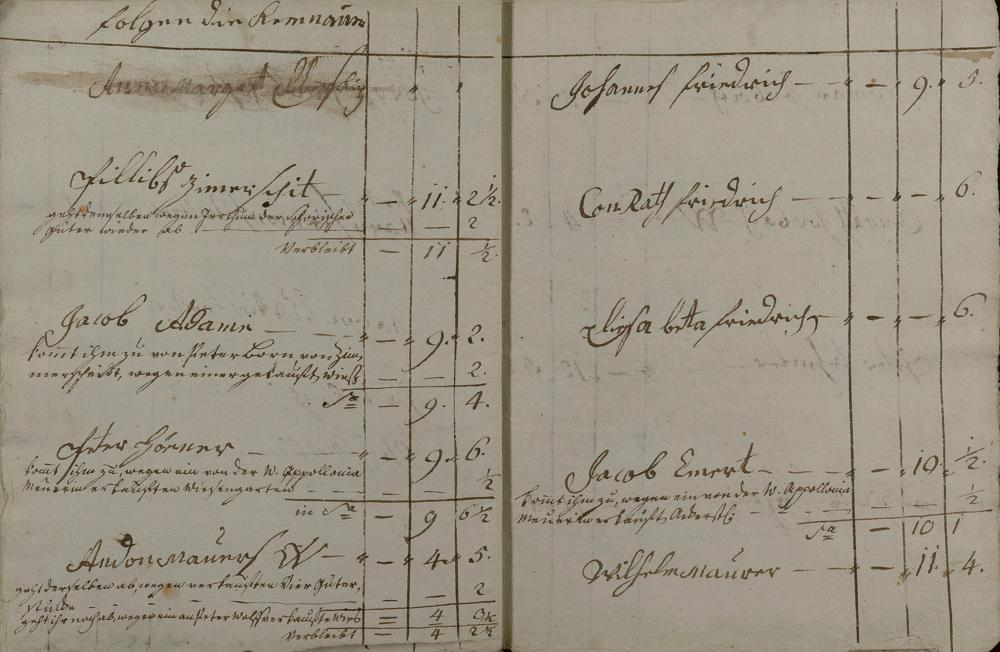 folgen die Kemnauer
Anna Margret
Pillibs Zimerschit — „ — „ 11. „ 2 ½.
geht demselben wegen Irrthum der
güter wieder ab — — 2
Verbleibt — 11 ½.
Jacob Adame — — „ — „ 9. „ 2.
kommt ihm zu von Peter Born von Zim„
merscheidt, wegen einer gekaufft. Wieß — — 2.
Sa — 9. 4.
Peter Hörner — — „ — „ 9. „ 6.
kommt ihm zu, wegen ein von der W. Appollonia
Meurerin erkaufften Wiesengarten — — — ½
in Sa — 9 6 ½
Andon Mauers W — „ — „ 4. „ 5.
geht derselben ab, wegen verkaufften Vier Güter,
Stücke — — — 2
geht ihr noch ab, wegen ein an Peter Wolff verkauffte Wies — 4 3
Verbleibt — 4 2 ½
Johannes Friedrich — „ — „ 9. „ 5.
ConRath Friedrich — „ — „ — „ 6.
Eliesabeta Friedrich — „ — „ — „ 6.
Jacob Emert — — „ — „ 10. „ ½.
kommt ihm zu, wegen ein von der W. Appollonia
Meurerin erkaufft. — ½
Sa — 10 1
Wilhelm Maurer — — „ — „ 11. „ 4.